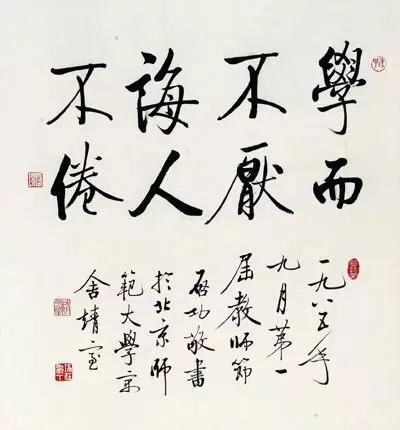 學而
不厭
誨人
不倦
一九八五年
九月第一
届教師節
启功敬書
於北京師
範大學京
舍 室